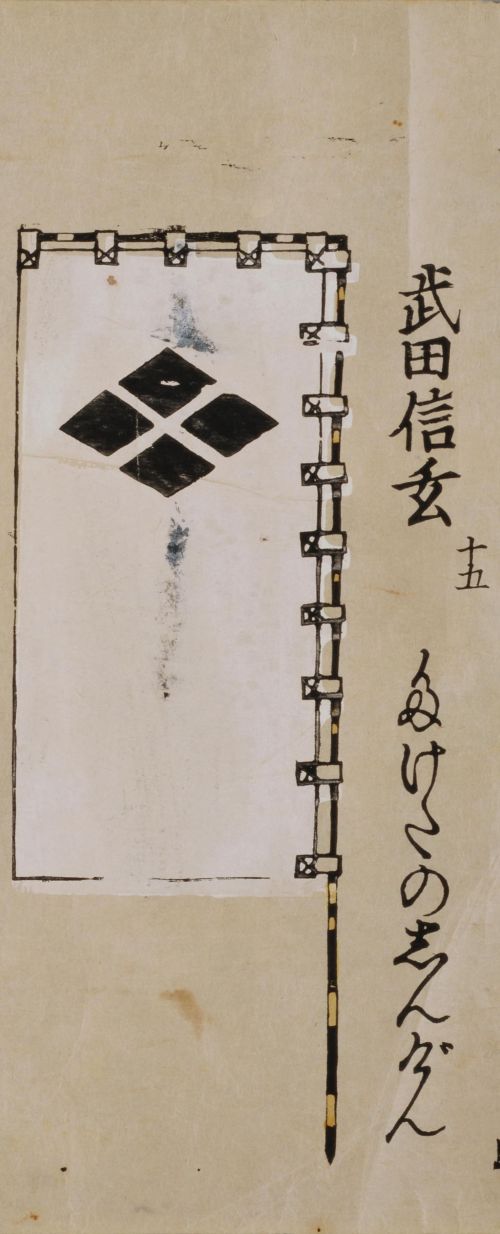 武田信玄
十五
たけだの志んげん